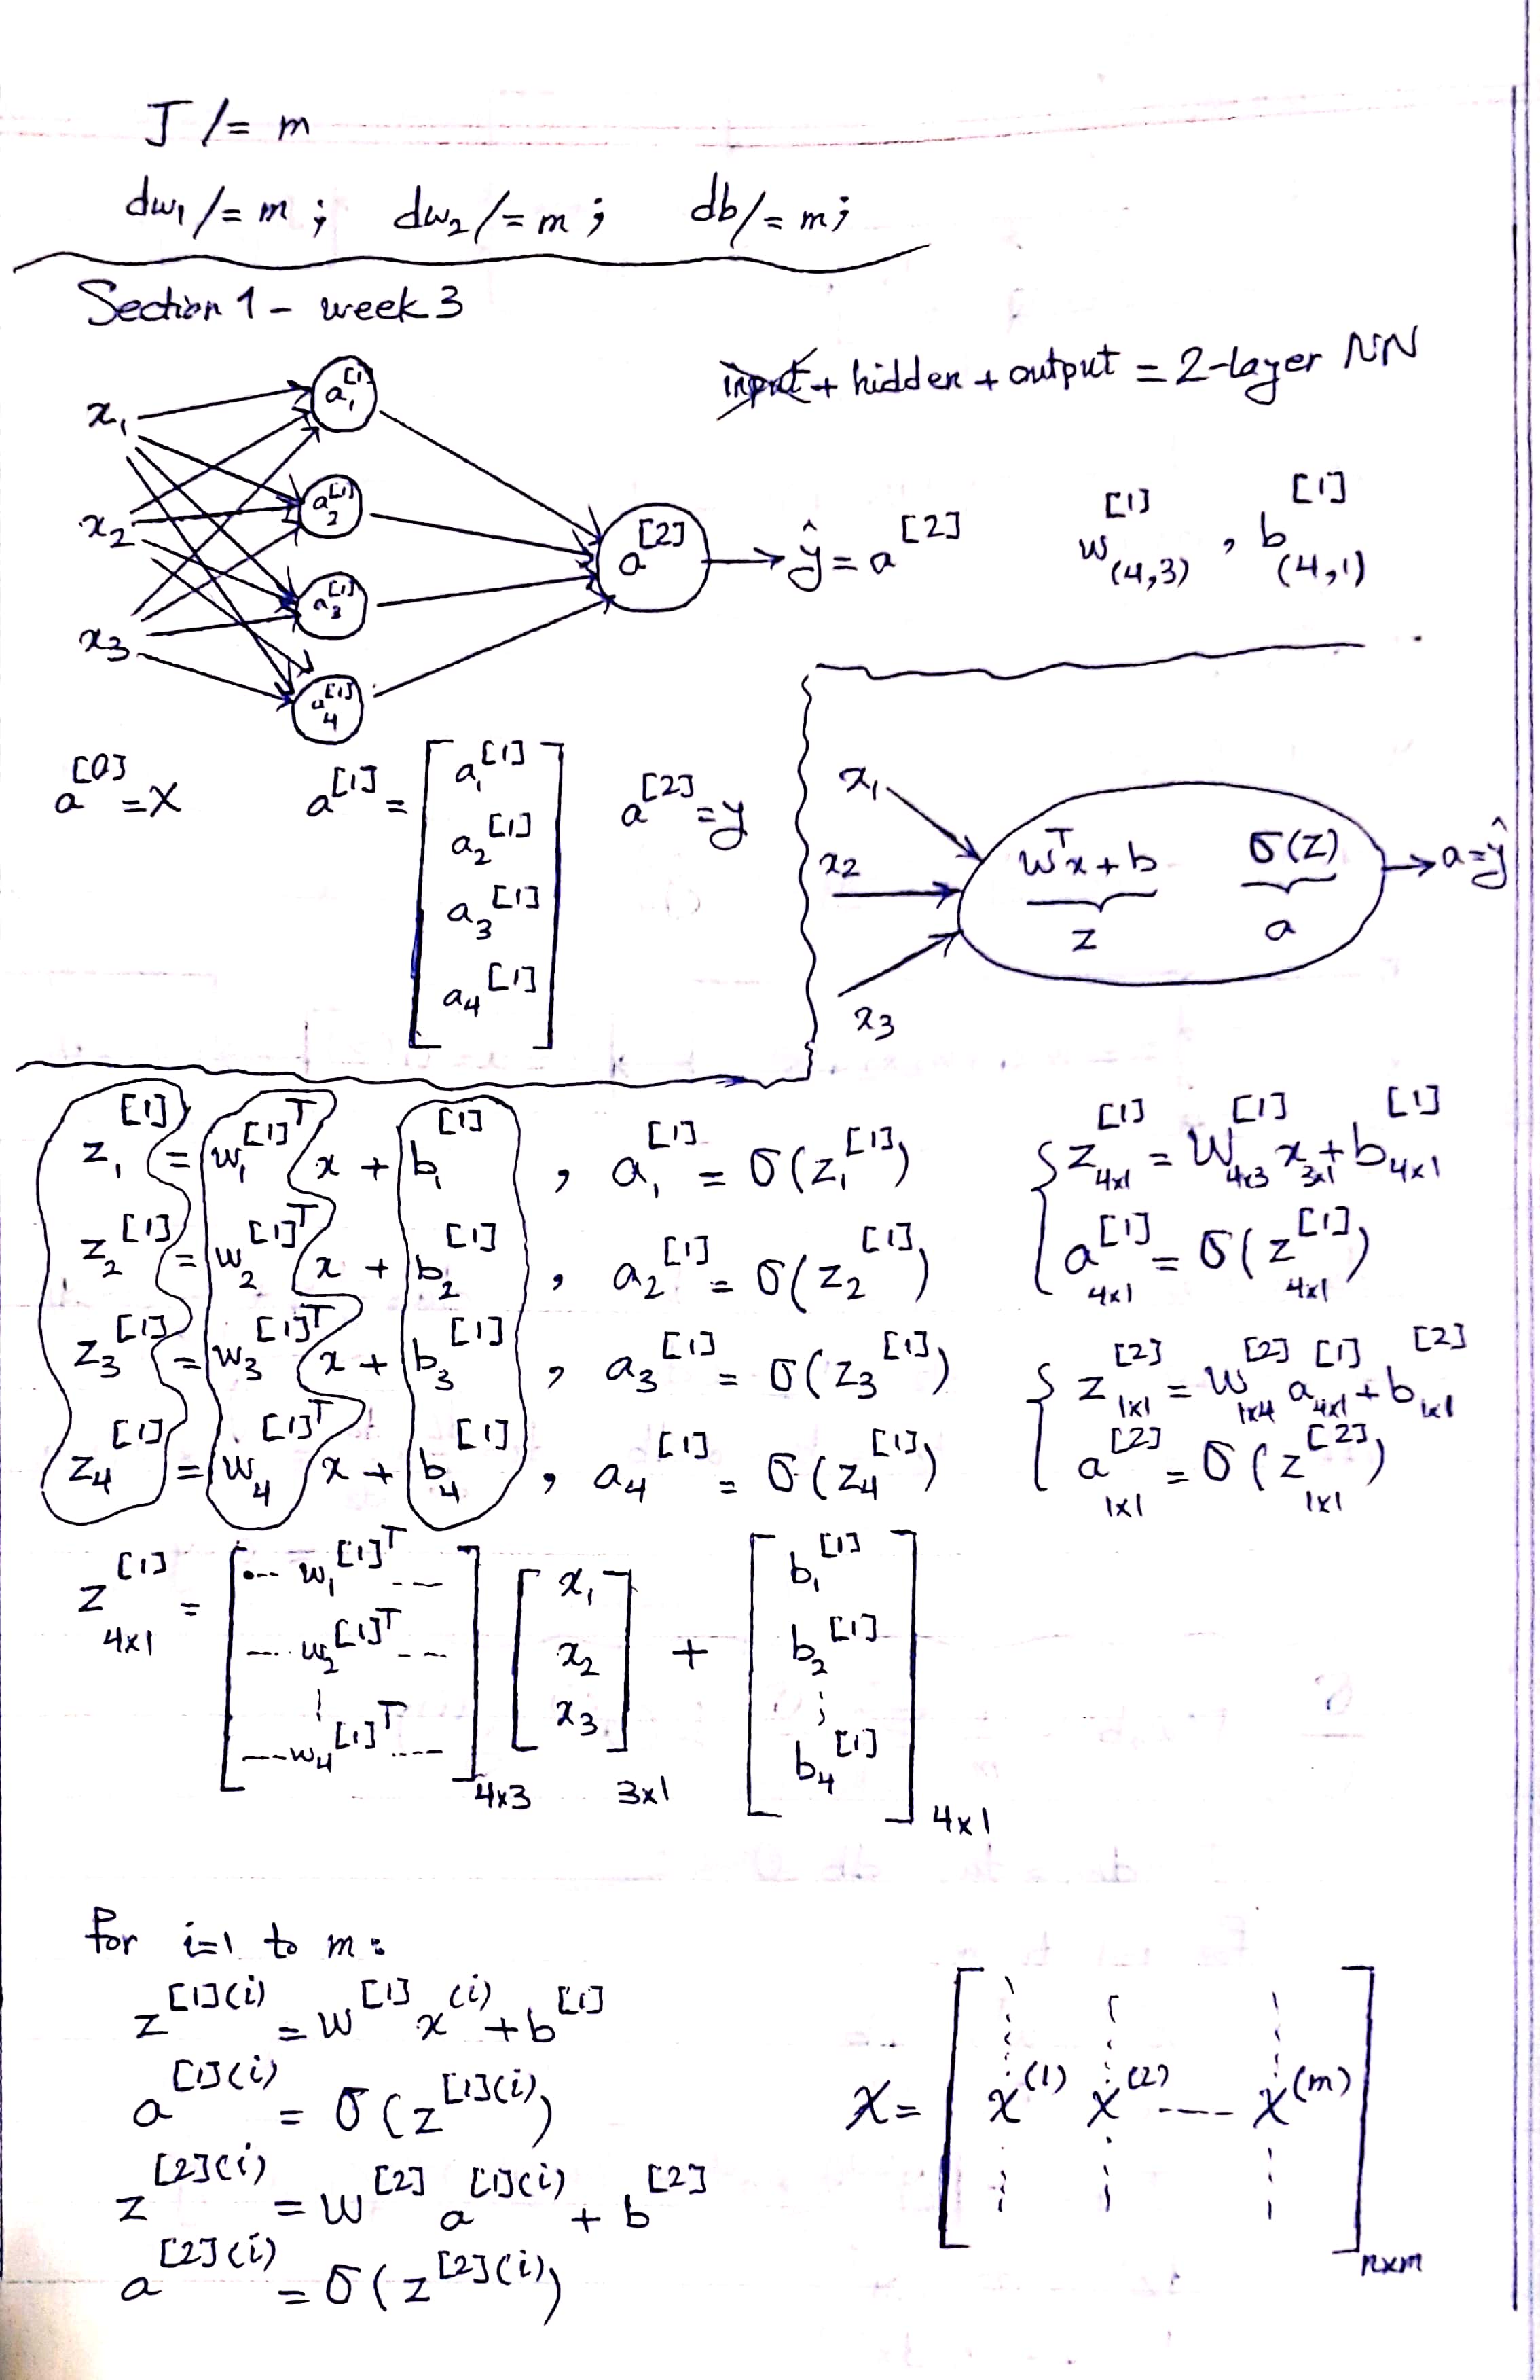 J /= m
dw₁ /= m ; dw₂ /= m ; db /= m ;
Section 1 - week 3
input + hidden + output = 2-layer NN
x₁
x₂
x₃
a₁^[1]
a₂^[1]
a₃^[1]
a₄^[1]
a^[2]
ŷ = a^[2]
w^[1]_(4,3) , b^[1]_(4,1)
a^[0] = X
a^[1] = [ a₁^[1]
a₂^[1]
a₃^[1]
a₄^[1] ]
a^[2] = y
x₁
x₂
x₃
w^T x + b
z
σ(z)
a
a = ŷ
z₁^[1] = w₁^[1]T x + b₁^[1] , a₁^[1] = σ(z₁^[1])
z₂^[1] = w₂^[1]T x + b₂^[1] , a₂^[1] = σ(z₂^[1])
z₃^[1] = w₃^[1]T x + b₃^[1] , a₃^[1] = σ(z₃^[1])
z₄^[1] = w₄^[1]T x + b₄^[1] , a₄^[1] = σ(z₄^[1])
z^[1]_4x1 = W^[1]_4x3 x_3x1 + b^[1]_4x1
a^[1]_4x1 = σ(z^[1]_4x1)
z^[2]_1x1 = W^[2]_1x4 a^[1]_4x1 + b^[2]_1x1
a^[2]_1x1 = σ(z^[2]_1x1)
z^[1]_4x1 = [ --- w₁^[1]T ---
--- w₂^[1]T ---
⋮
--- w₄^[1]T --- ]_4x3
[ x₁
x₂
x₃ ]_3x1
+
[ b₁^[1]
b₂^[1]
⋮
b₄^[1] ]_4x1
for i=1 to m :
z^[1](i) = W^[1] x^(i) + b^[1]
a^[1](i) = σ(z^[1](i))
z^[2](i) = W^[2] a^[1](i) + b^[2]
a^[2](i) = σ(z^[2](i))
X = [ x^(1) x^(2) ---- x^(m) ]_nxm